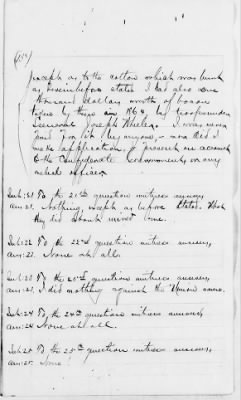 (15)
except as to the cotton which was burnt
as hereinbefore stated I had also one
thousand dollars worth of bacon
taken by them in 1863 by
General Joseph Wheeler. I was never
paid for it by anyone - nor did I
make application, or present an account
to the Confederate Government, or any
rebel officer
Int: 21 To the 21st question witness answers,
Ans: 21. Nothing, except as before stated. What
they did should
Int: 22 To the 22nd question witness answers,
Ans: 22. None at all.
Int: 23 To the 23rd question witness answers,
Ans: 23. I did nothing against the Union cause.
Int: 24 To the 24th question witness answers,
Ans: 24 None at all.
Int: 25 To the 25th question witness answers,
Ans: 25. None.